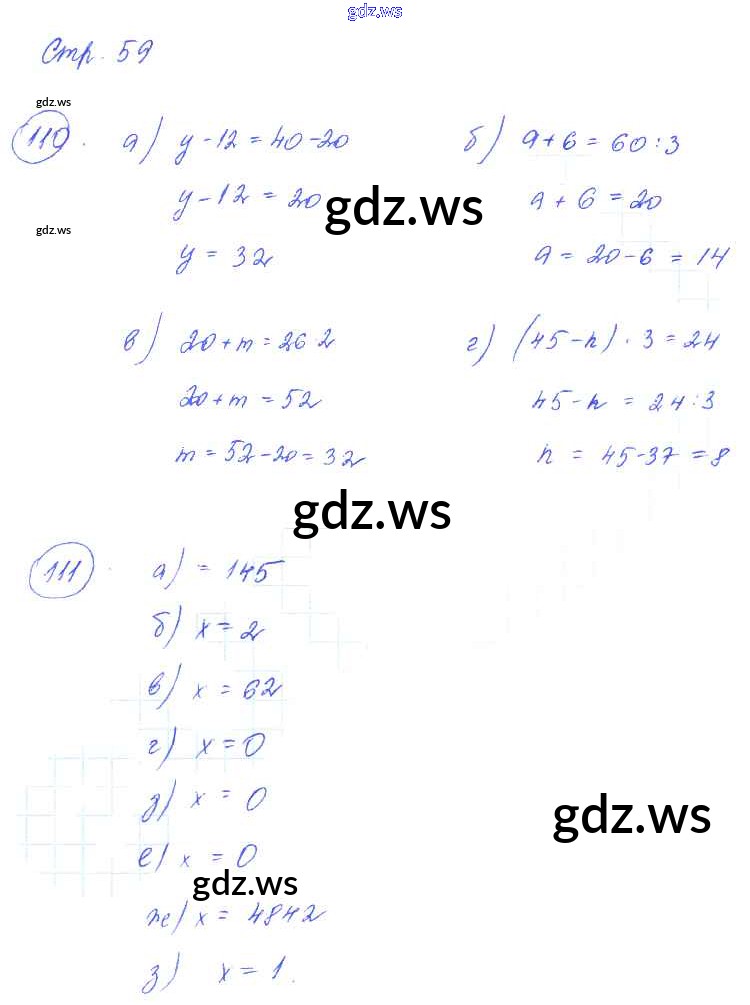 gdz.ws
Стр. 59
gdz.ws
110. а) y-12=40-20 б) a+6=60:3
y-12=20 a+6=20
gdz.ws
gdz.ws
y=32 a=20-6=14
в) 20+m=26 2 г) (45-n)·3=24
20+m=52 45-n=24:3
m=52-20=32 n=45-37=8
gdz.ws
111. а) =145
б) x=2
в) x=62
г) x=0
д) x=0
gdz.ws
е) x=0
gdz.ws
же) x=4842
з) x=1.